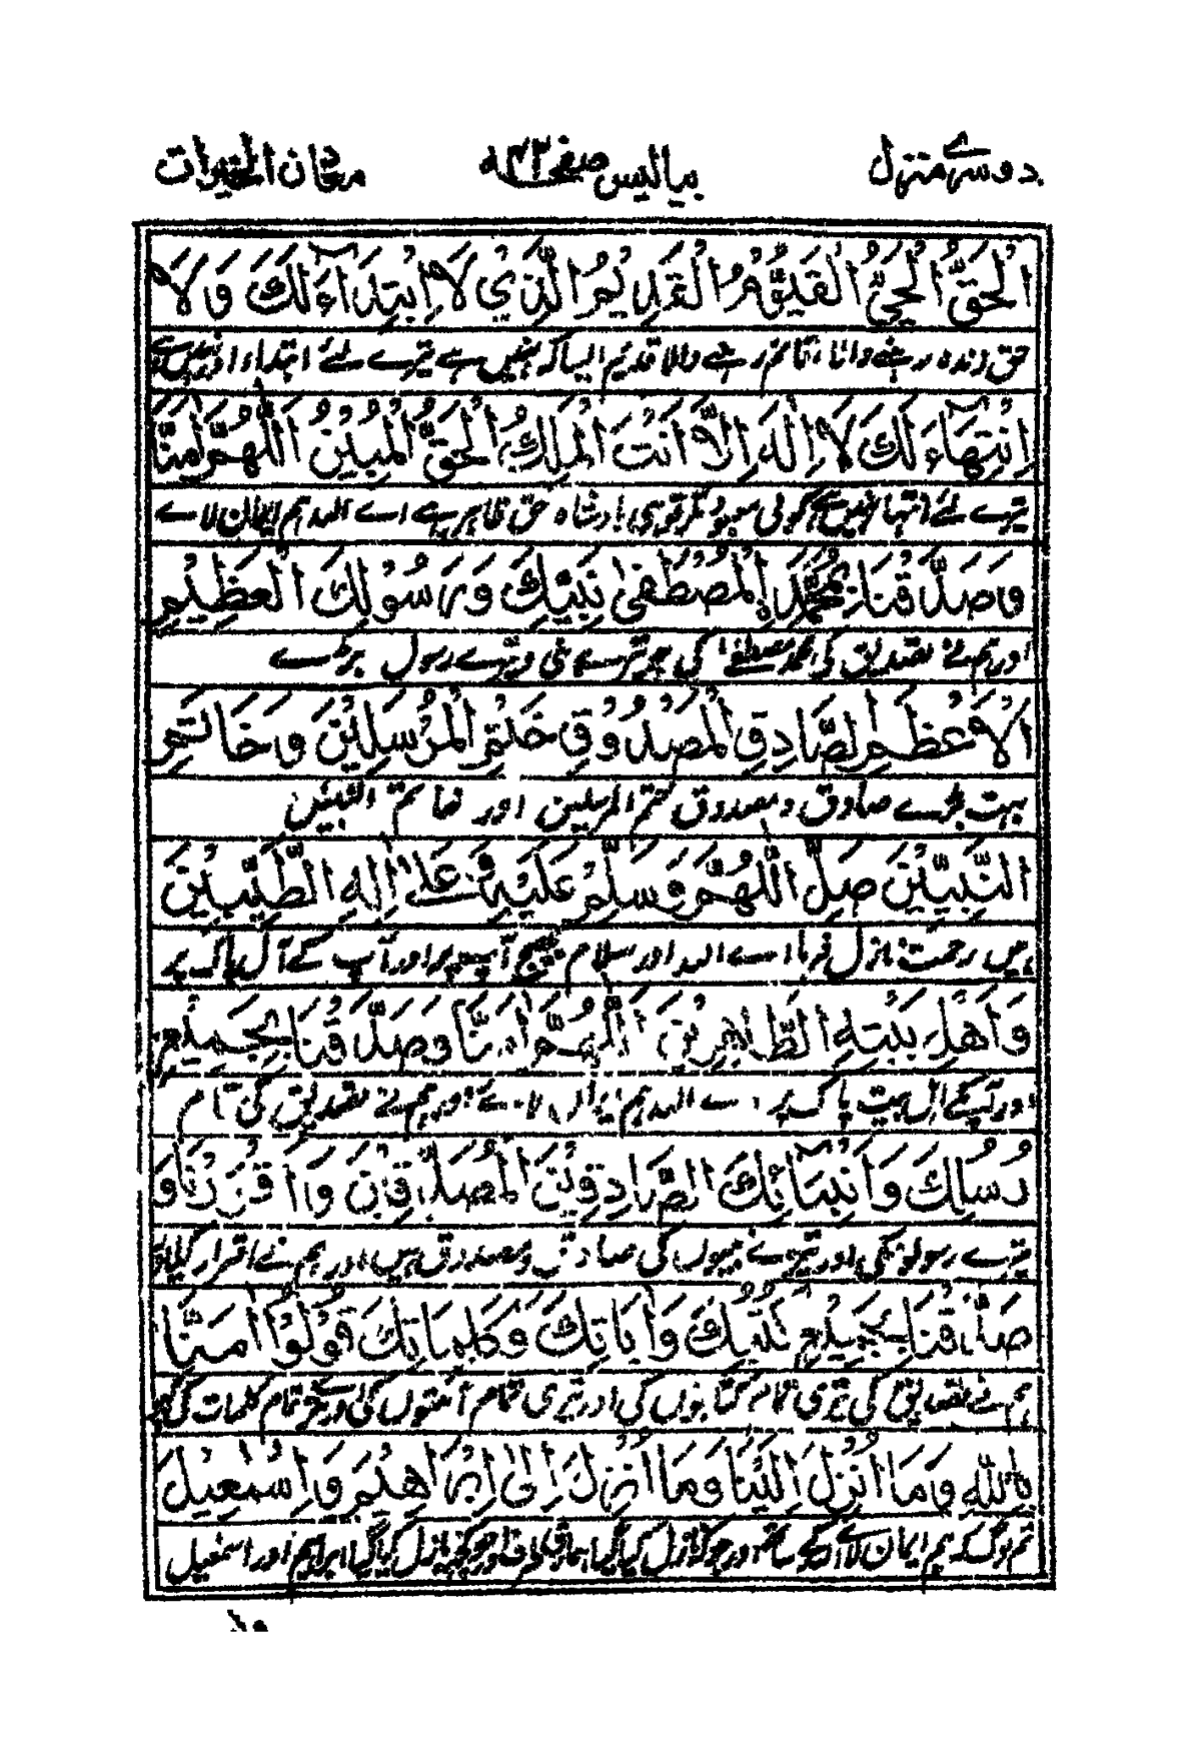 دوسرے منزل بیالیس صفحہ ۴۲ معدن الخیرات
اَلْحَقُّ الْحَیُّ الْقَیُّوْمُ الْقَدِیْمُ الَّذِیْ لَا اِبْتِدَآءَ لَكَ وَلَا
حق زندہ رہنے والا، قائم رہنے والا قدیم ایسا کہ نہیں ہے تیرے لئے ابتداء اور نہیں ہے
اِنْتِهَآءَ لَكَ لَا اِلٰهَ اِلَّا اَنْتَ الْمَلِكُ الْحَقُّ الْمُبِیْنُ اَللّٰهُمَّ اٰمَنَّا
تیرے لئے انتہا نہیں ہے کوئی معبود مگر تو ہی بادشاہ حق ظاہر ہے اے اللہ ہم ایمان لائے
وَصَدَّقْنَا بِمُحَمَّدِ اِلْمُصْطَفٰی نَبِیِّكَ وَرَسُوْلِكَ الْعَظِیْمِ
اور ہم نے تصدیق کی محمد مصطفےٰ کی جو تیرے نبی و تیرے رسول بڑے
الْاَعْظَمِ الصَّادِقِ الْمَصْدُوْقِ خَتْمِ الْمُرْسَلِیْنَ وَخَاتَمِ
بہت بڑے صادق و مصدوق ختم المرسلین اور خاتم النبیین
النَّبِیِّیْنَ صَلِّ اللّٰهُمَّ وَسَلِّمْ عَلَیْهِ وَعَلٰے اٰلِهِ الطَّیِّبِیْنَ
ہیں رحمت نازل فرما اے اللہ اور سلام بھیج آپ پر اور آپ کے آل پاک پر
وَاَهْلِ بَیْتِهِ الطَّاهِرِیْنَ اَللّٰهُمَّ اٰمَنَّا وَصَدَّقْنَا بِجَمِیْعِ
اور آپکے اہل بیت پاک پر اے اللہ ہم ایمان لائے اور ہم نے تصدیق کی تمام
رُسُلِكَ وَاَنْبِیَآئِكَ الصَّادِقِیْنَ الْمُصَدَّقِیْنَ وَاَقْرَرْنَا وَ
تیرے رسولونکی اور تیرے نبیوں کی صادق و مصدوق ہیں اور ہم نے اقرار کیا اور
صَدَّقْنَا بِجَمِیْعِ كُتُبِكَ وَاٰیَاتِكَ وَكَلِمَاتِكَ قُوْلُوْا اٰمَنَّا
ہم نے تصدیق کی تیری تمام کتابوں کی اور تیری تمام آئتوں کی اور تیرے تمام کلمات کی کہو
بِاللّٰهِ وَمَا اُنْزِلَ اِلَیْنَا وَمَا اُنْزِلَ اِلٰی اِبْرَاهِیْمَ وَاِسْمٰعِیْلَ
تم لوگ کہ ہم ایمان لائے اللہ کے ساتھ اور جو کہ نازل کیا گیا ہماری طرف اور جو کچھ نازل کیا گیا ابراہیم اور اسمٰعیل